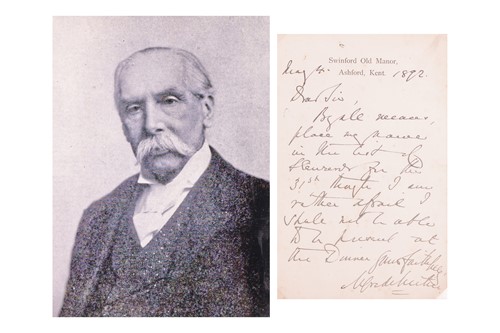 Swinford Old Manor,
Ashford, Kent.
May 1892
Dear Sir,
By all means,
place my name
in the list of
Stewards for the
31st though I am
rather afraid I
shall not be able
to be present at
the Dinner Yours faithfully
Alfred Austin